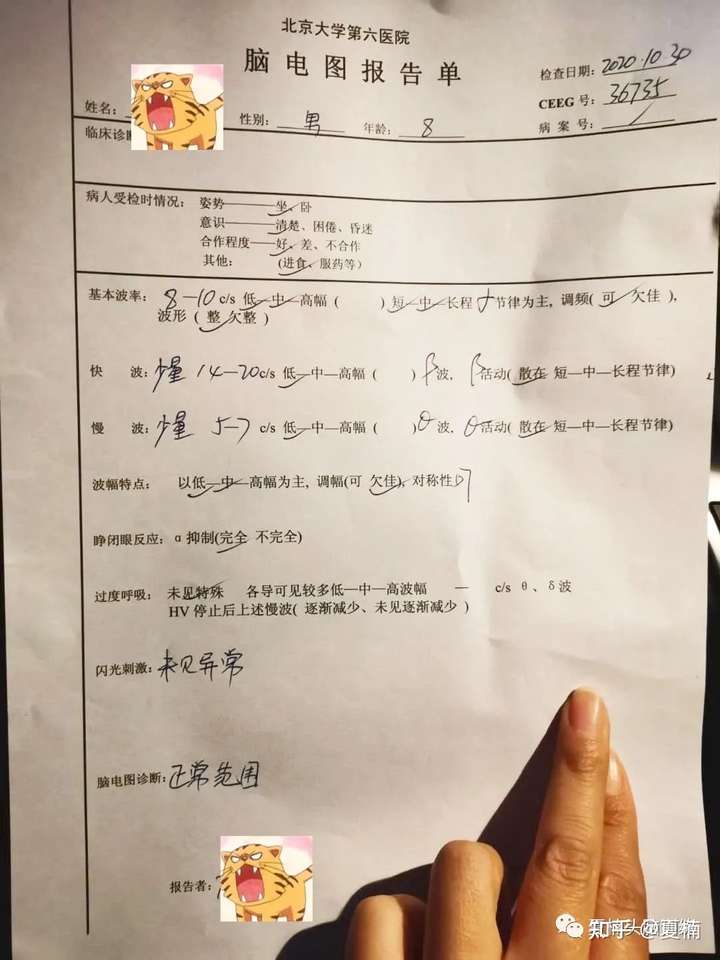 北京大学第六医院
脑电图报告单
检查日期: 2020.10.30
CEEG 号: 36735
姓名: 性别: 男 年龄: 8 病案号: /
临床诊断
病人受检时情况: 姿势——坐、卧
意识——清楚、困倦、昏迷
合作程度——好、差、不合作
其他: (进食、服药等)
基本波率: 8—10 c/s 低—中—高幅 ( ) 短—中—长程 节律为主, 调频( 可 欠佳 ),
波形 ( 整 欠整 )
快 波: 少量 14—20 c/s 低—中—高幅 ( ) β波, β活动( 散在 短—中—长程节律)
慢 波: 少量 5—7 c/s 低—中—高幅 ( ) θ波, θ活动( 散在 短—中—长程节律)
波幅特点: 以低—中—高幅为主, 调幅(可 欠佳), 对称性
睁闭眼反应: α 抑制(完全 不完全)
过度呼吸: 未见特殊 各导可见较多低—中—高波幅 — c/s θ、δ波
HV 停止后上述慢波( 逐渐减少、未见逐渐减少 )
闪光刺激: 未见异常
脑电图诊断: 正常范围
报告者:
知乎 @夏楠